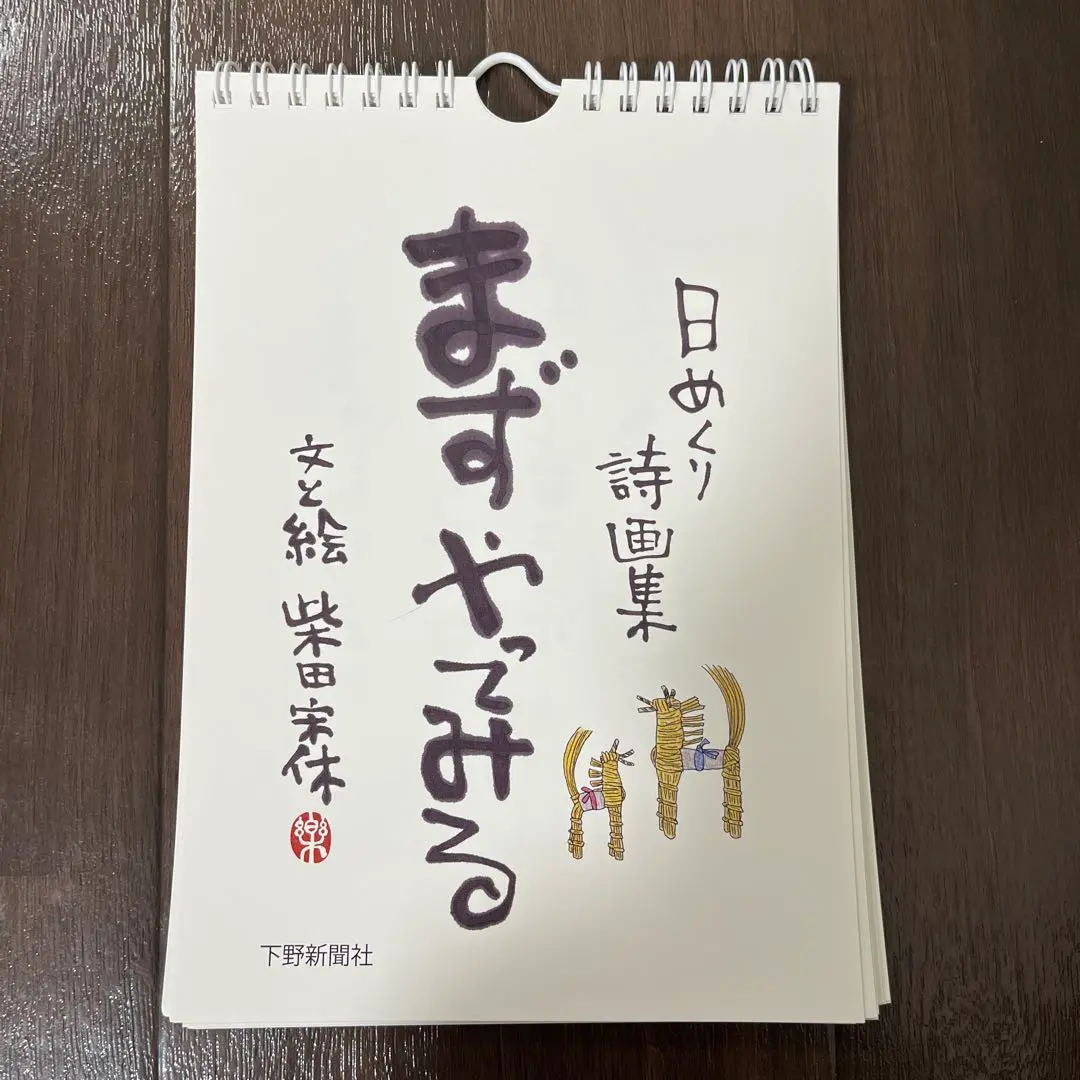 日めくり
詩画集
まずやってみる
文と絵 柴田宗休
樂
下野新聞社